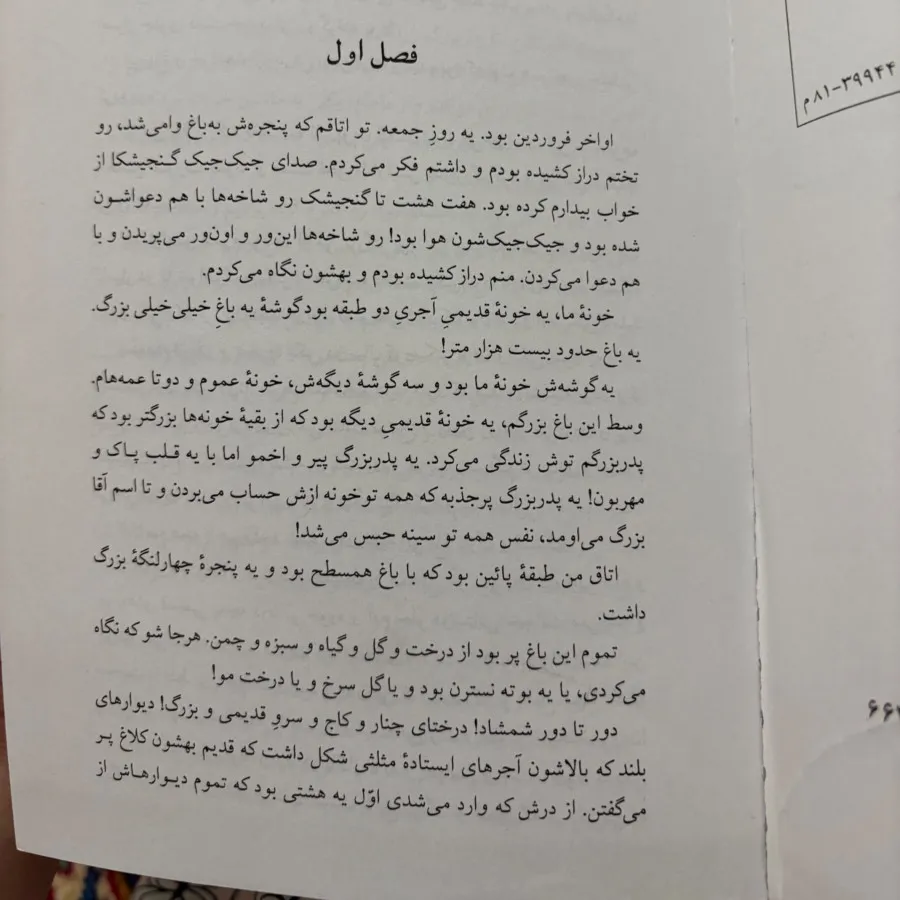 فصل اول
اواخر فروردین بود. یه روزِ جمعه. تو اتاقم که پنجره‌ش به‌باغ وامی‌شد، رو
تختم دراز کشیده بودم و داشتم فکر می‌کردم. صدای جیک‌جیک گنجیشکا از
خواب بیدارم کرده بود. هفت هشت تا گنجیشک رو شاخه‌ها با هم دعواشون
شده بود و جیک‌جیک‌شون هوا بود! رو شاخه‌ها این‌ور و اون‌ور می‌پریدن و با
هم دعوا می‌کردن. منم دراز کشیده بودم و بهشون نگاه می‌کردم.
خونهٔ ما، یه خونهٔ قدیمیِ آجریِ دو طبقه بود گوشهٔ یه باغِ خیلی‌خیلی بزرگ.
یه باغ حدود بیست هزار متر!
یه گوشه‌ش خونهٔ ما بود و سه گوشهٔ دیگه‌ش، خونهٔ عموم و دوتا عمه‌هام.
وسط این باغ بزرگم، یه خونهٔ قدیمیِ دیگه بود که از بقیهٔ خونه‌ها بزرگتر بود که
پدربزرگم توش زندگی می‌کرد. یه پدربزرگ پیر و اخمو اما با یه قلب پاک و
مهربون! یه پدربزرگ پرجذبه که همه تو خونه ازش حساب می‌بردن و تا اسم آقا
بزرگ می‌اومد، نفس همه تو سینه حبس می‌شد!
اتاق من طبقهٔ پائین بود که با باغ همسطح بود و یه پنجرهٔ چهارلنگهٔ بزرگ
داشت.
تموم این باغ پر بود از درخت و گل و گیاه و سبزه و چمن. هرجا شو که نگاه
می‌کردی، یا یه بوته نسترن بود و یا گل سرخ و یا درخت مو!
دور تا دور شمشاد! درختای چنار و کاج و سروِ قدیمی و بزرگ! دیوارهای
بلند که بالاشون آجرهای ایستادهٔ مثلثی شکل داشت که قدیم بهشون کلاغ پر
می‌گفتن. از درش که وارد می‌شدی اوّل یه هشتی بود که تموم دیوارهاش از
۸۱-۳۹۹۴۴م